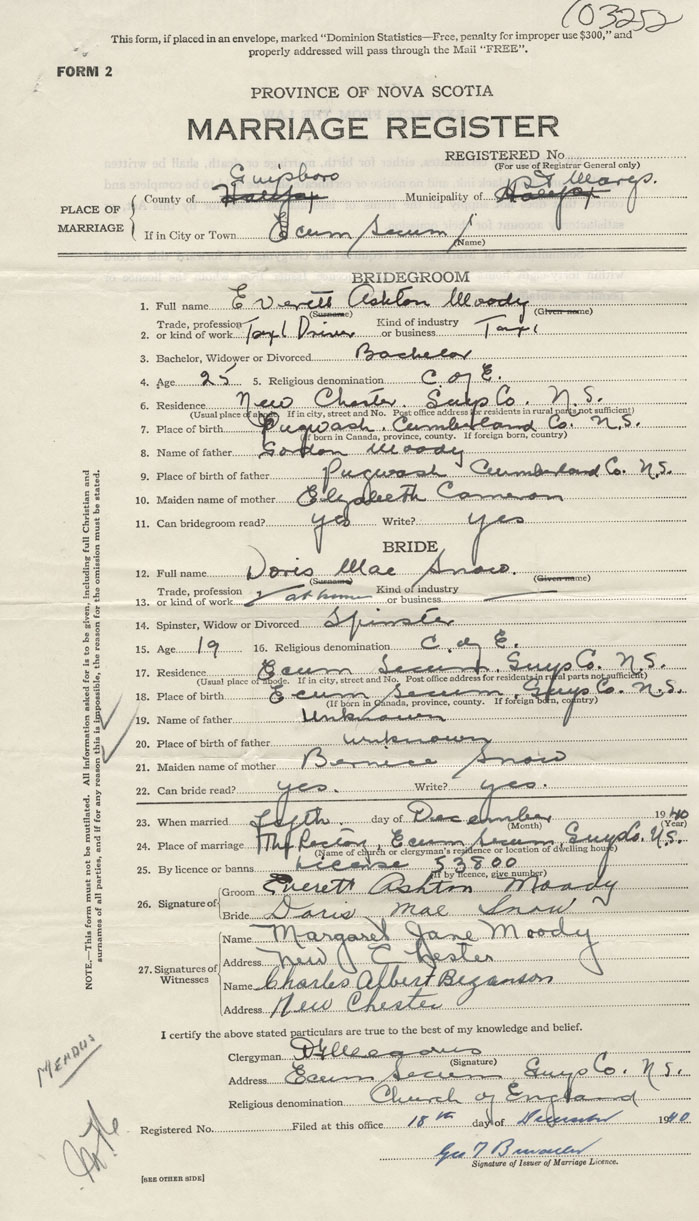 103252
This form, if placed in an envelope, marked "Dominion Statistics—Free, penalty for improper use $300," and
properly addressed will pass through the Mail "FREE".
FORM 2
PROVINCE OF NOVA SCOTIA
MARRIAGE REGISTER
REGISTERED No.
(For use of Registrar General only)
PLACE OF MARRIAGE
Guysboro St Marys.
County of Halifax Municipality of Halifax
If in City or Town Ecum Secum
(Name)
BRIDEGROOM
1. Full name Everett Ashton Moody
(Surname) (Given name)
2. Trade, profession or kind of work Taxi Driver Kind of industry or business Taxi
3. Bachelor, Widower or Divorced Bachelor
4. Age 25 5. Religious denomination C of E.
6. Residence New Chester. Guys Co. N.S.
(Usual place of abode. If in city, street and No. Post office address for residents in rural parts not sufficient)
7. Place of birth Pugwash. Cumberland Co. N.S.
(If born in Canada, province, county. If foreign born, country)
8. Name of father Gordon Moody
9. Place of birth of father Pugwash Cumberland Co. N.S.
10. Maiden name of mother Elizabeth Cameron
11. Can bridegroom read? yes Write? yes
BRIDE
12. Full name Doris Mae Snow.
(Surname) (Given name)
13. Trade, profession or kind of work at home Kind of industry or business
14. Spinster, Widow or Divorced Spinster
15. Age 19 16. Religious denomination C. of E.
17. Residence Ecum Secum, Guys Co. N.S.
(Usual place of abode. If in city, street and No. Post office address for residents in rural parts not sufficient)
18. Place of birth Ecum Secum, Guys Co. N.S.
(If born in Canada, province, county. If foreign born, country)
19. Name of father Unknown
20. Place of birth of father unknown
21. Maiden name of mother Bernice Snow
22. Can bride read? yes. Write? yes.
23. When married day of December 1940
(Month) (Year)
24. Place of marriage The Rectory, Ecum Secum, Guys Co. N.S.
(Name of church or clergyman's residence or location of dwelling house)
25. By licence or banns License 53800
(If by licence, give number)
26. Signature of
Groom Everett Ashton Moody
Bride Doris Mae Snow
27. Signatures of Witnesses
Name Margaret Jane Moody
Address New Chester
Name Charles Albert Bezanson
Address New Chester
I certify the above stated particulars are true to the best of my knowledge and belief.
Clergyman
(Signature)
Address Ecum Secum Guys Co. N.S.
Religious denomination Church of England
Registered No. Filed at this office 18th day of December 1940
Signature of Issuer of Marriage Licence.
[SEE OTHER SIDE]
NOTE.—This form must not be mutilated. All information asked for is to be given, including full Christian and
surnames of all parties, and if for any reason this is impossible, the reason for the omission must be stated.